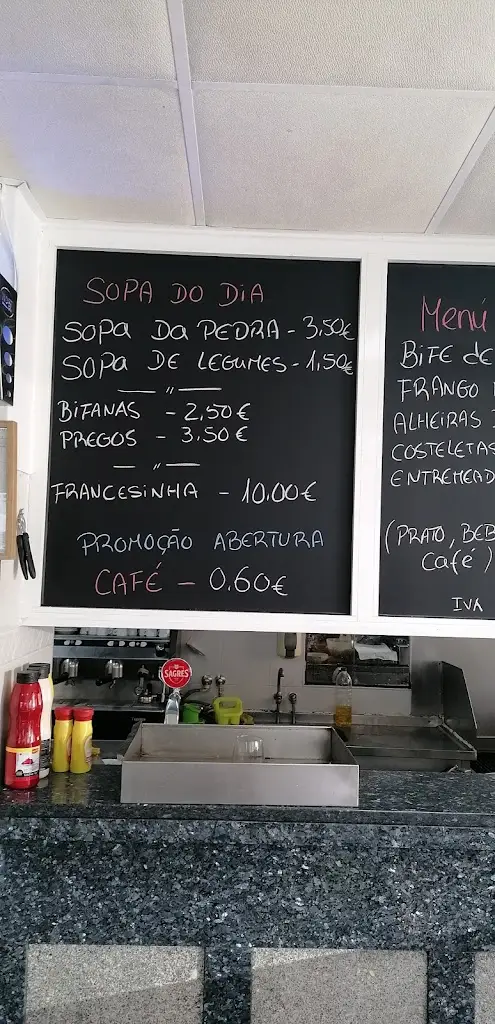 SOPA DO DIA
SOPA DA PEDRA - 3,50€
SOPA DE LEGUMES - 1,50€
— " —
BIFANAS - 2,50€
PREGOS - 3,50€
— " —
FRANCESINHA - 10,00€
PROMOÇÃO ABERTURA
CAFÉ - 0.60€
Menú
BIFE de
FRANGO
ALHEIRAS
COSTELETAS
ENTREMEAD
(PRATO, BEB
Café)
IVA
SAGRES